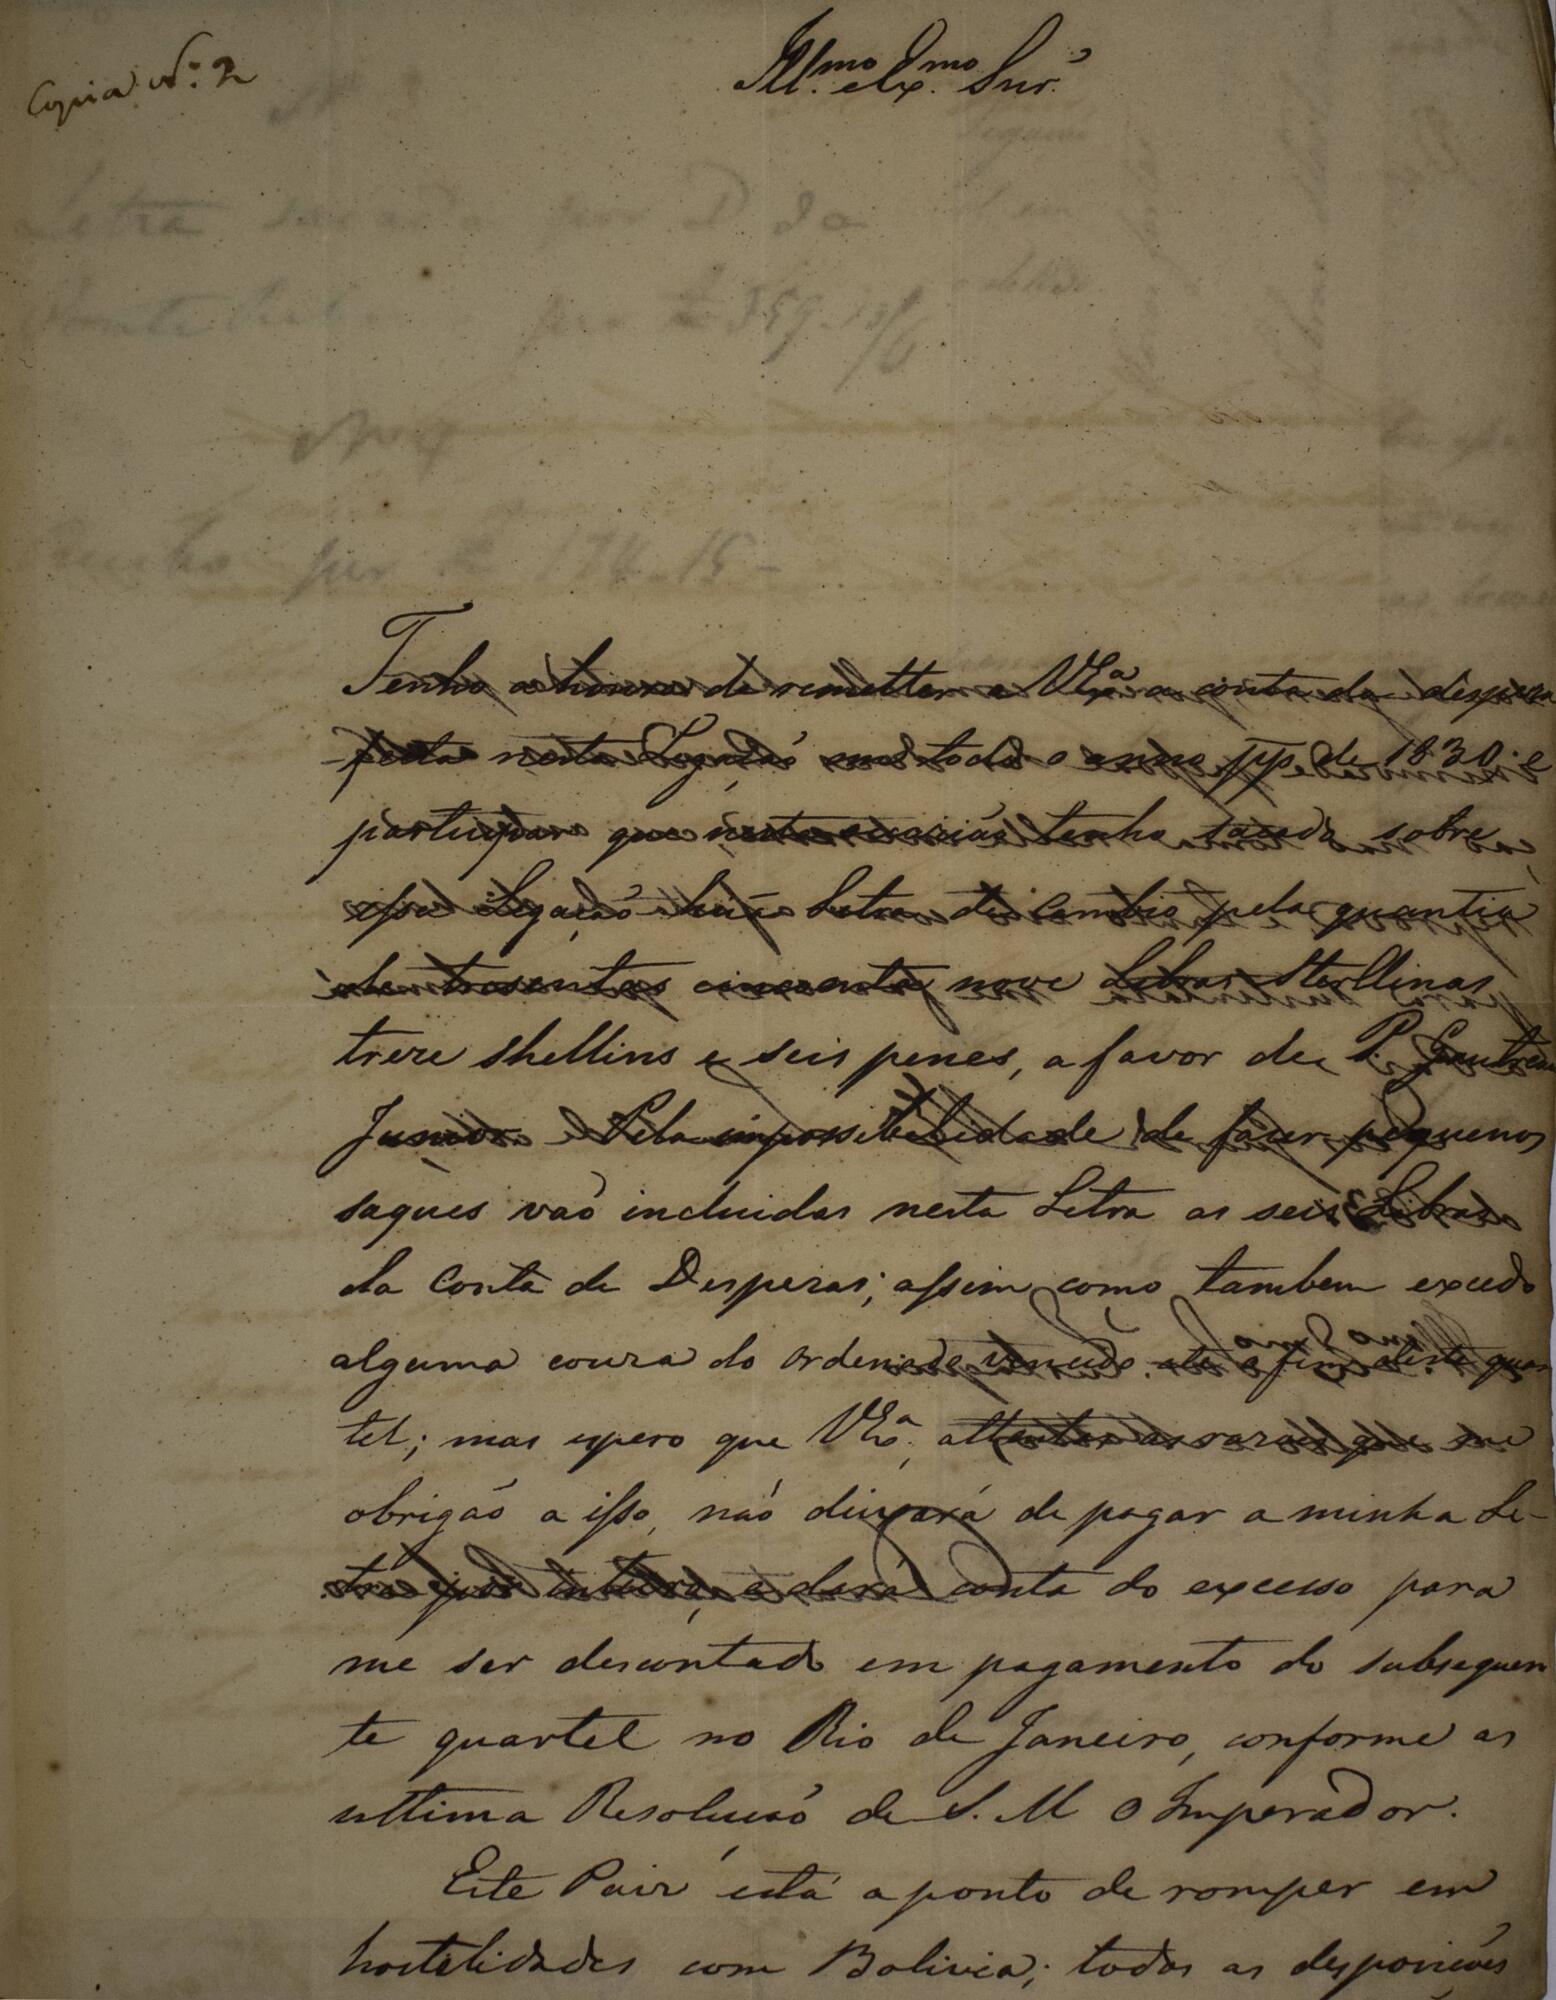 Copia Nº: 2
Ill.mo Ex.mo Snr.
Letra sacada por P. da
por £ 359.13/6
Nº 4
por £ 174.15-
Tenho a honra de remetter a VExª a conta da despeza
feita nesta Legação em todo o anno pp. de 1830. e
participar que nesta occazião tenho sacado sobre
essa Legação huã Letra de Cambio pela quantia
de tresentas cincoenta nove Libras Sterllinas
treze shellins e seis penes, a favor de P.
Junior. Pela impossibelidade de fazer pequenos
saques vaõ incluidas nesta Letra as seis Libras
da Conta de Despezas; assim como tambem excedo
alguma couza do ordenado vencido até o fim deste quar
tel; mas espero que VExª, attentas as razoes que me
obrigaõ a isso, naõ deixará de pagar a minha Le-
tra por inteiro, e dará conta do excesso para
me ser descontado em pagamento do subsequen
te quartel no Rio de Janeiro, conforme as
ultima Resoluçaõ de S. M. O Imperador.
Este Paiz está a ponto de romper em
hostelidades com Bolivia; todas as desposições